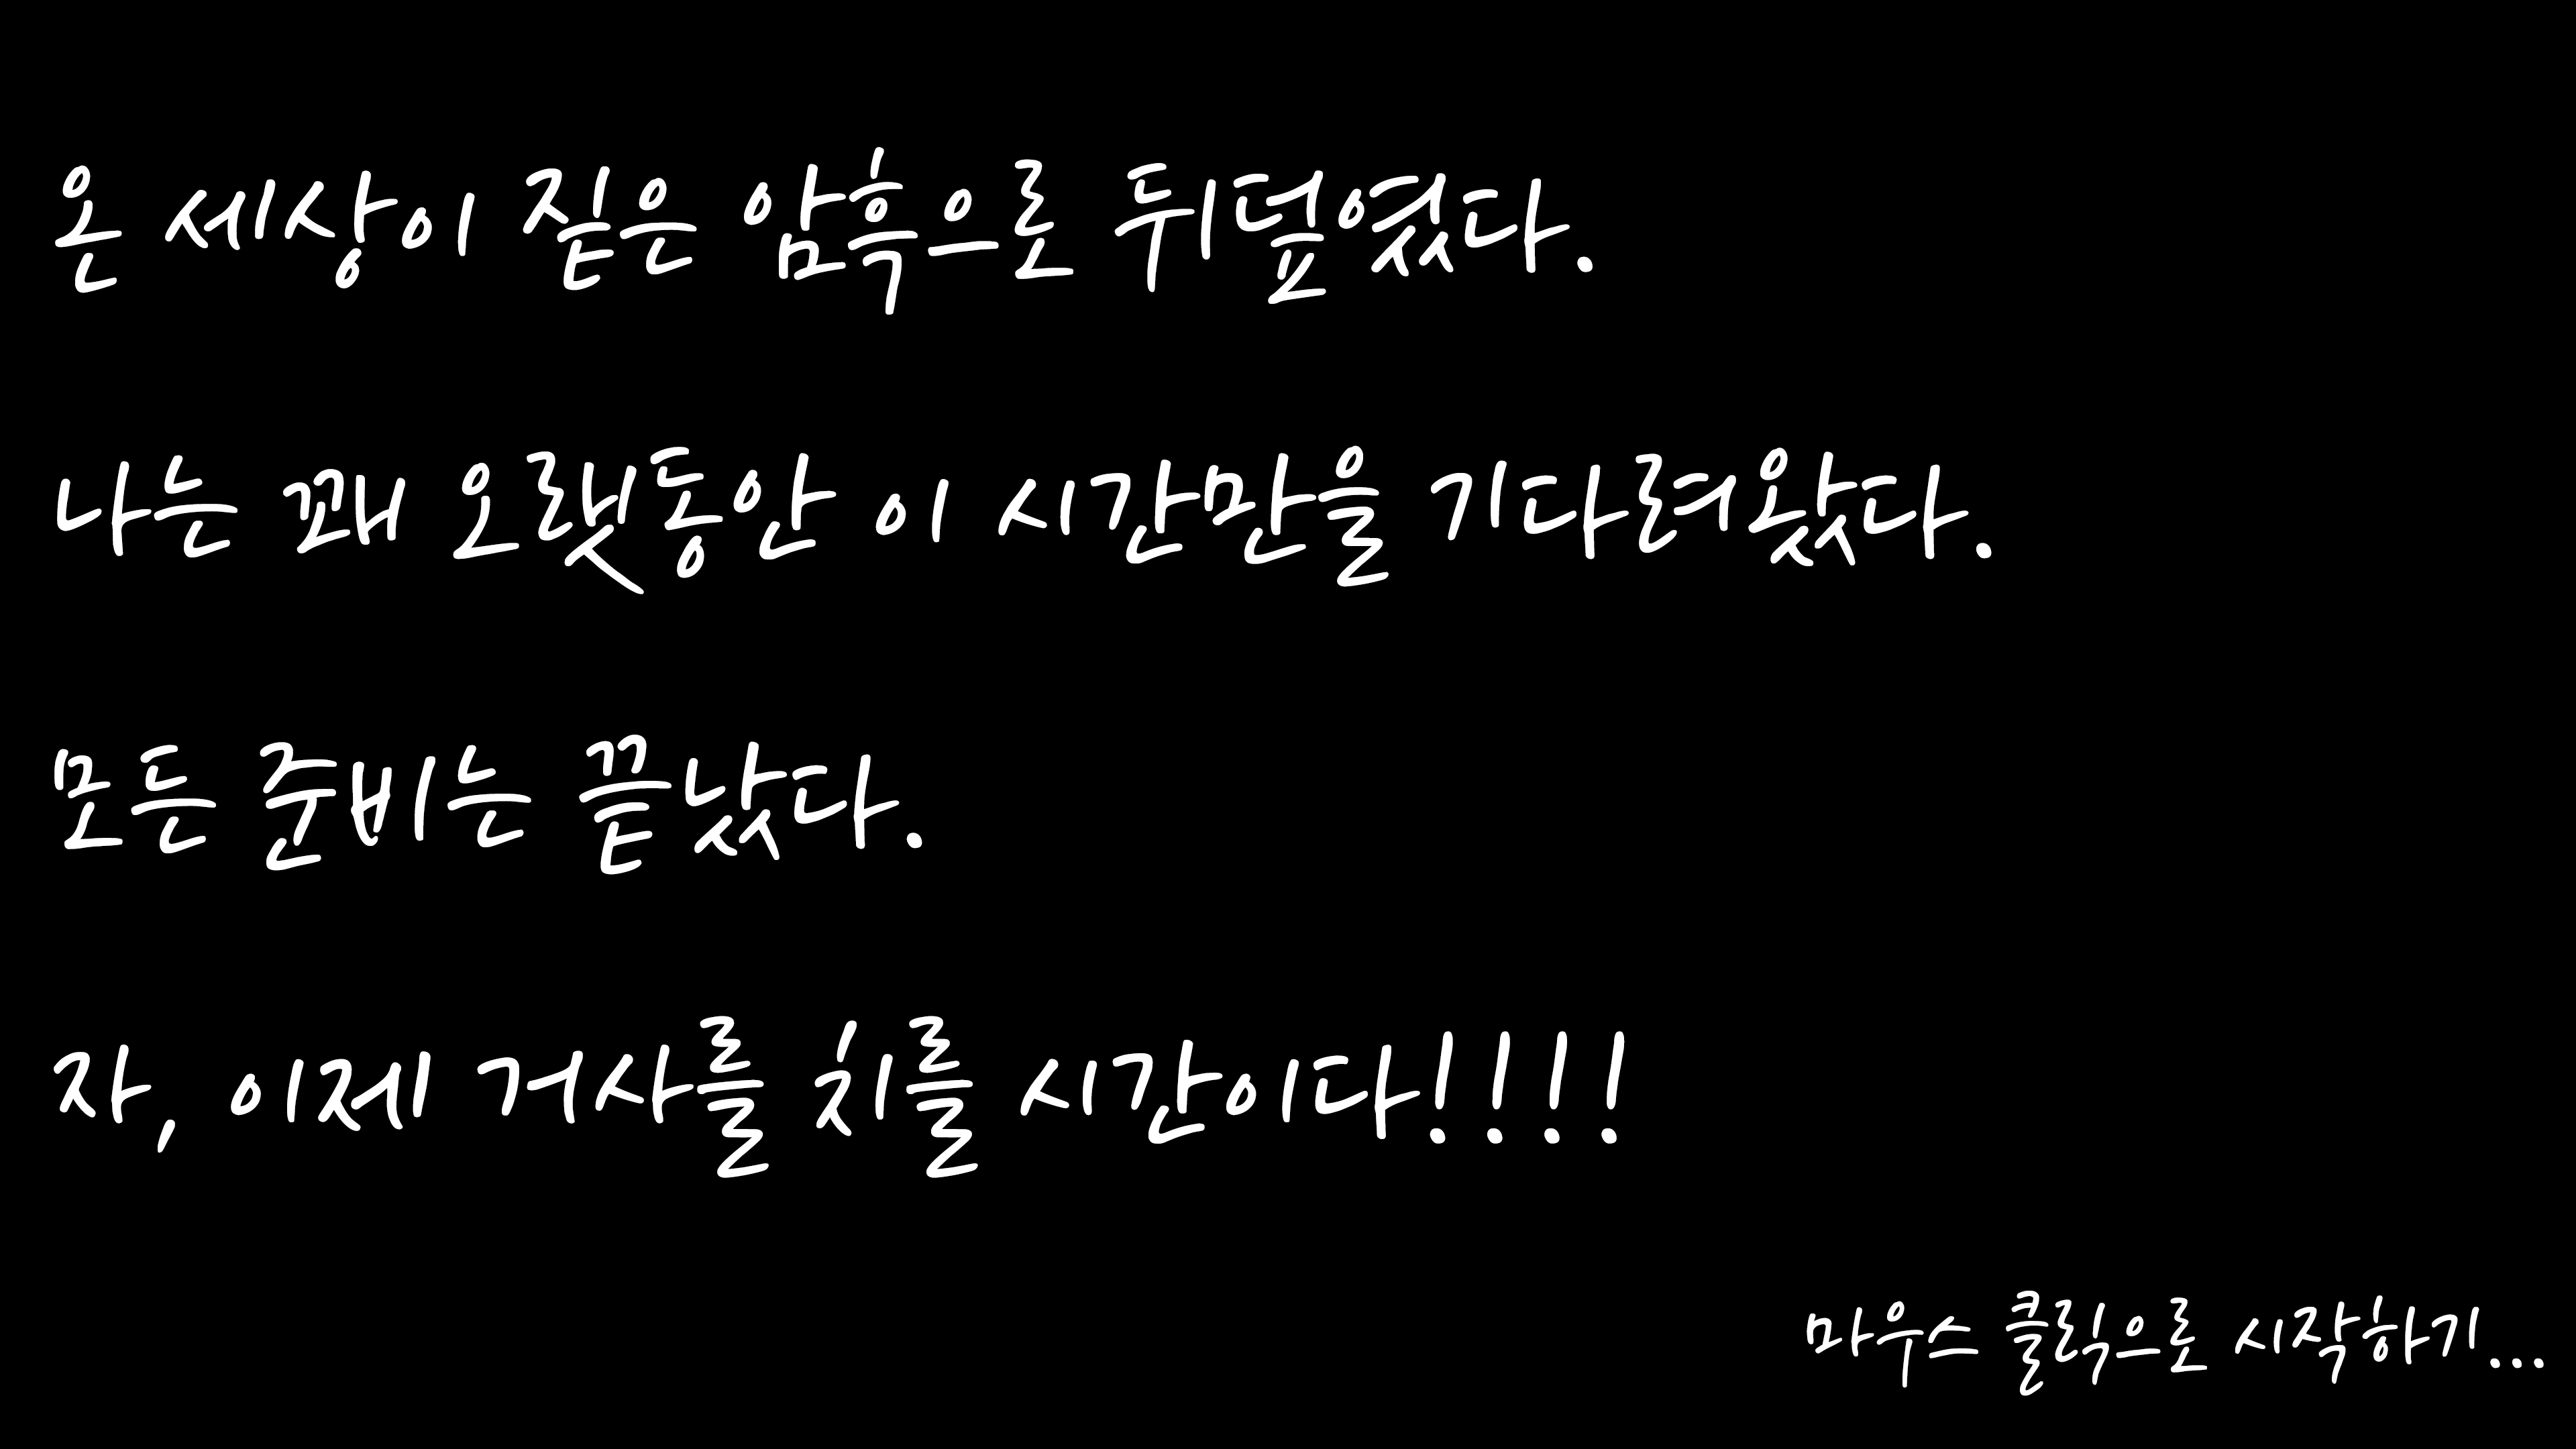 온 세상이 짙은 암흑으로 뒤덮였다.
나는 꽤 오랫동안 이 시간만을 기다려왔다.
모든 준비는 끝났다.
자, 이제 거사를 치를 시간이다!!!!
마우스 클릭으로 시작하기...